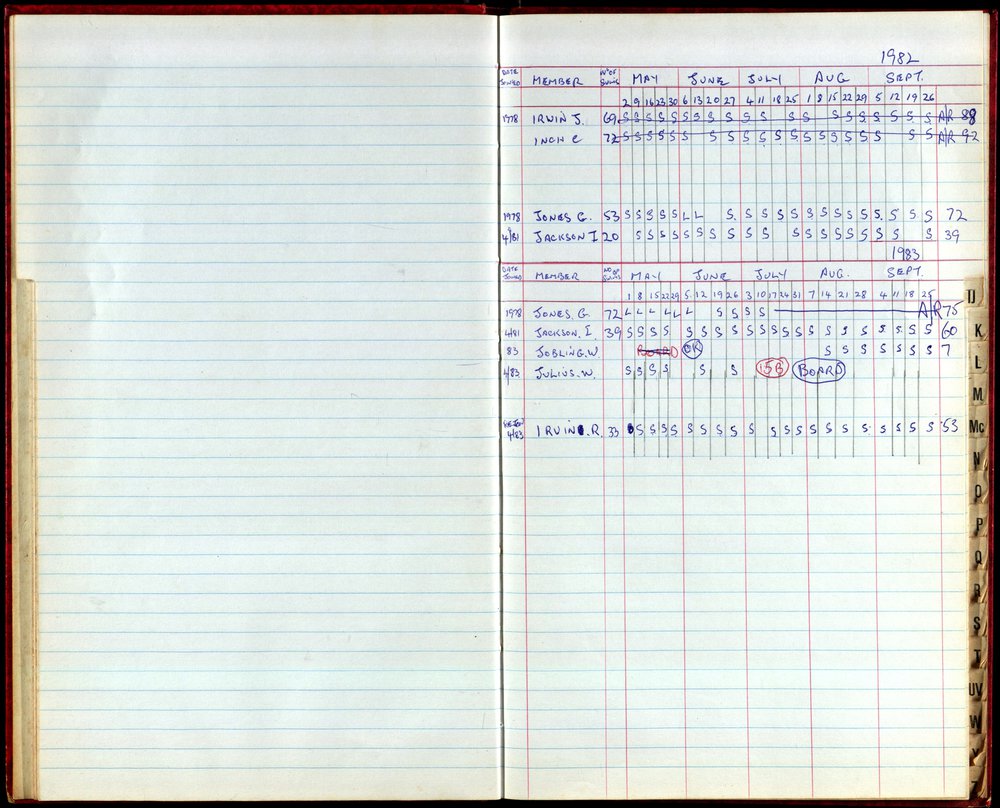 1982
DATE JOINED MEMBER Nº OF SWIMS MAY JUNE JULY AUG SEPT.
2 9 16 23 30 6 13 20 27 4 11 18 25 1 8 15 22 29 5 12 19 26
1978 IRWIN J. 69 S S S S S S S S S S S S S S S S S S S S A/R 88
INCH C 72 S S S S S S S S S S S S S S S S S S S S A/R 92
1978 JONES G. 53 S S S S S L L S. S S S S S S S S S S. S S S 72
4/81 JACKSON I 20 S S S S S S S S S S S S S S S S S S S 39
1983
DATE JOINED MEMBER NO OF SWIMS MAY JUNE JULY AUG. SEPT.
1 8 15 22 29 5 12 19 26 3 10 17 24 31 7 14 21 28 4 11 18 25
1978 JONES. G. 72 L L L L L L S S S S A/R 75
4/81 JACKSON. I. 39 S S S S S S S S S S S S S S S S S S S S S 60
83 JOBLING. W. BOARD OK S S S S S S S 7
4/83 JULIUS. W. S S S S S S 15B BOARD
4/83 IRVIN. R. 33 S S S S S S S S S S S S S S S S S S S S 53
IJ
K
L
M
Mc
N
O
P
Q
R
S
T
UV
W
Y
Z